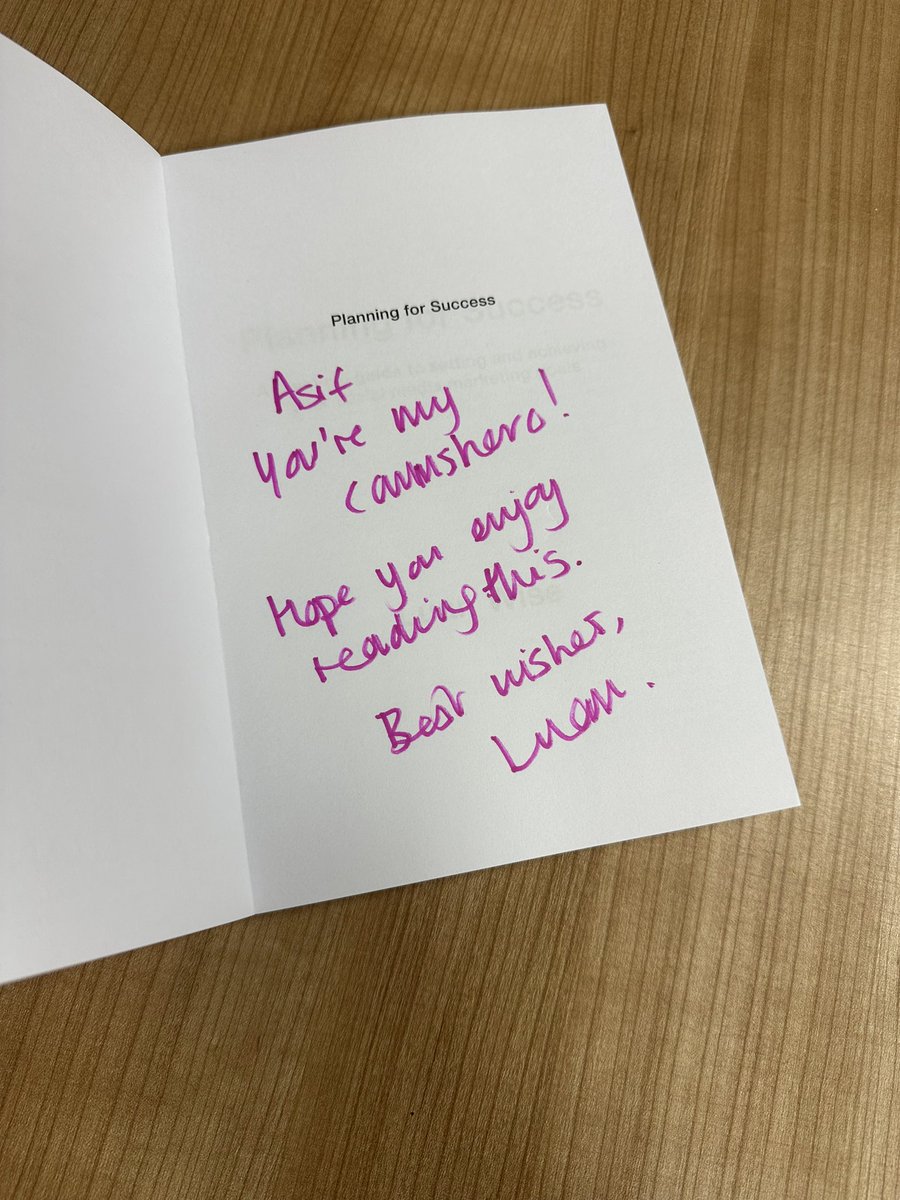 Planning for Success
Asif
You're my
commshero!
Hope you enjoy
reading this.
Best wishes,
Luan.